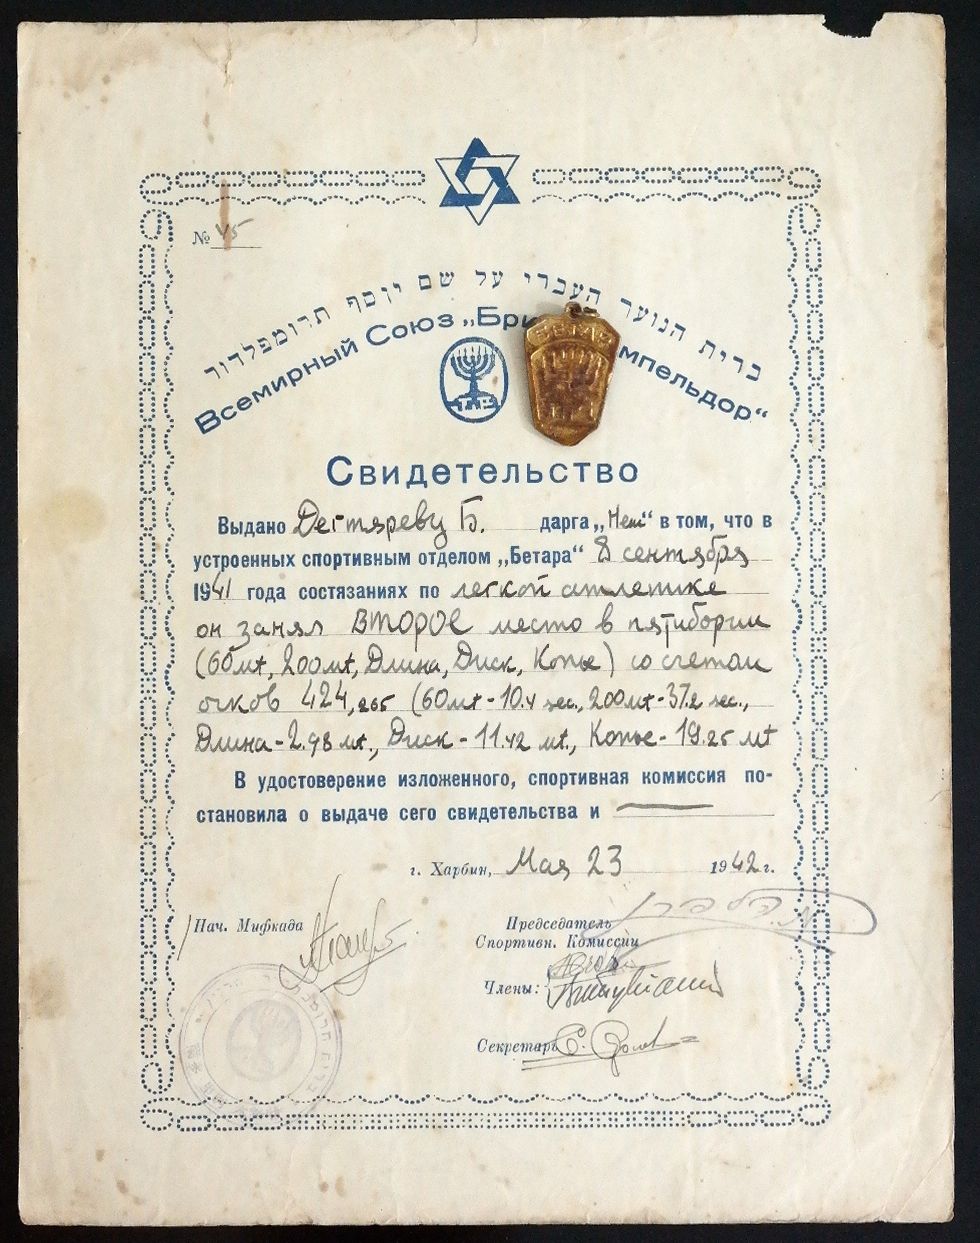 № 45
ברית הנוער העברי על שם יוסף תרומפלדור
Всемирный Союз „Бри мпельдор“
БЕТАР
Свидетельство
Выдано Дегтяреву Б. дарга „Мем“ в том, что в
устроенных спортивным отделом „Бетара“ 8 сентября
1941 года состязаниях по легкой атлетике
он занял ВТОРОЕ место в пятиборьи
(60мt, 200мt, Длина, Диск, Копье) со счетом
очков 424,265 (60мt - 10.4 сес., 200мt - 37.2 сес.,
Длина - 2.98 мt., Диск - 11.42 мt., Копье - 19.25 мt
В удостоверение изложенного, спортивная комиссия по-
становила о выдаче сего свидетельства и
г. Харбин, Мая 23 1942 г.
Нач. Мифкада
Председатель
Спортивн. Комиссии
Члены:
Секретарь